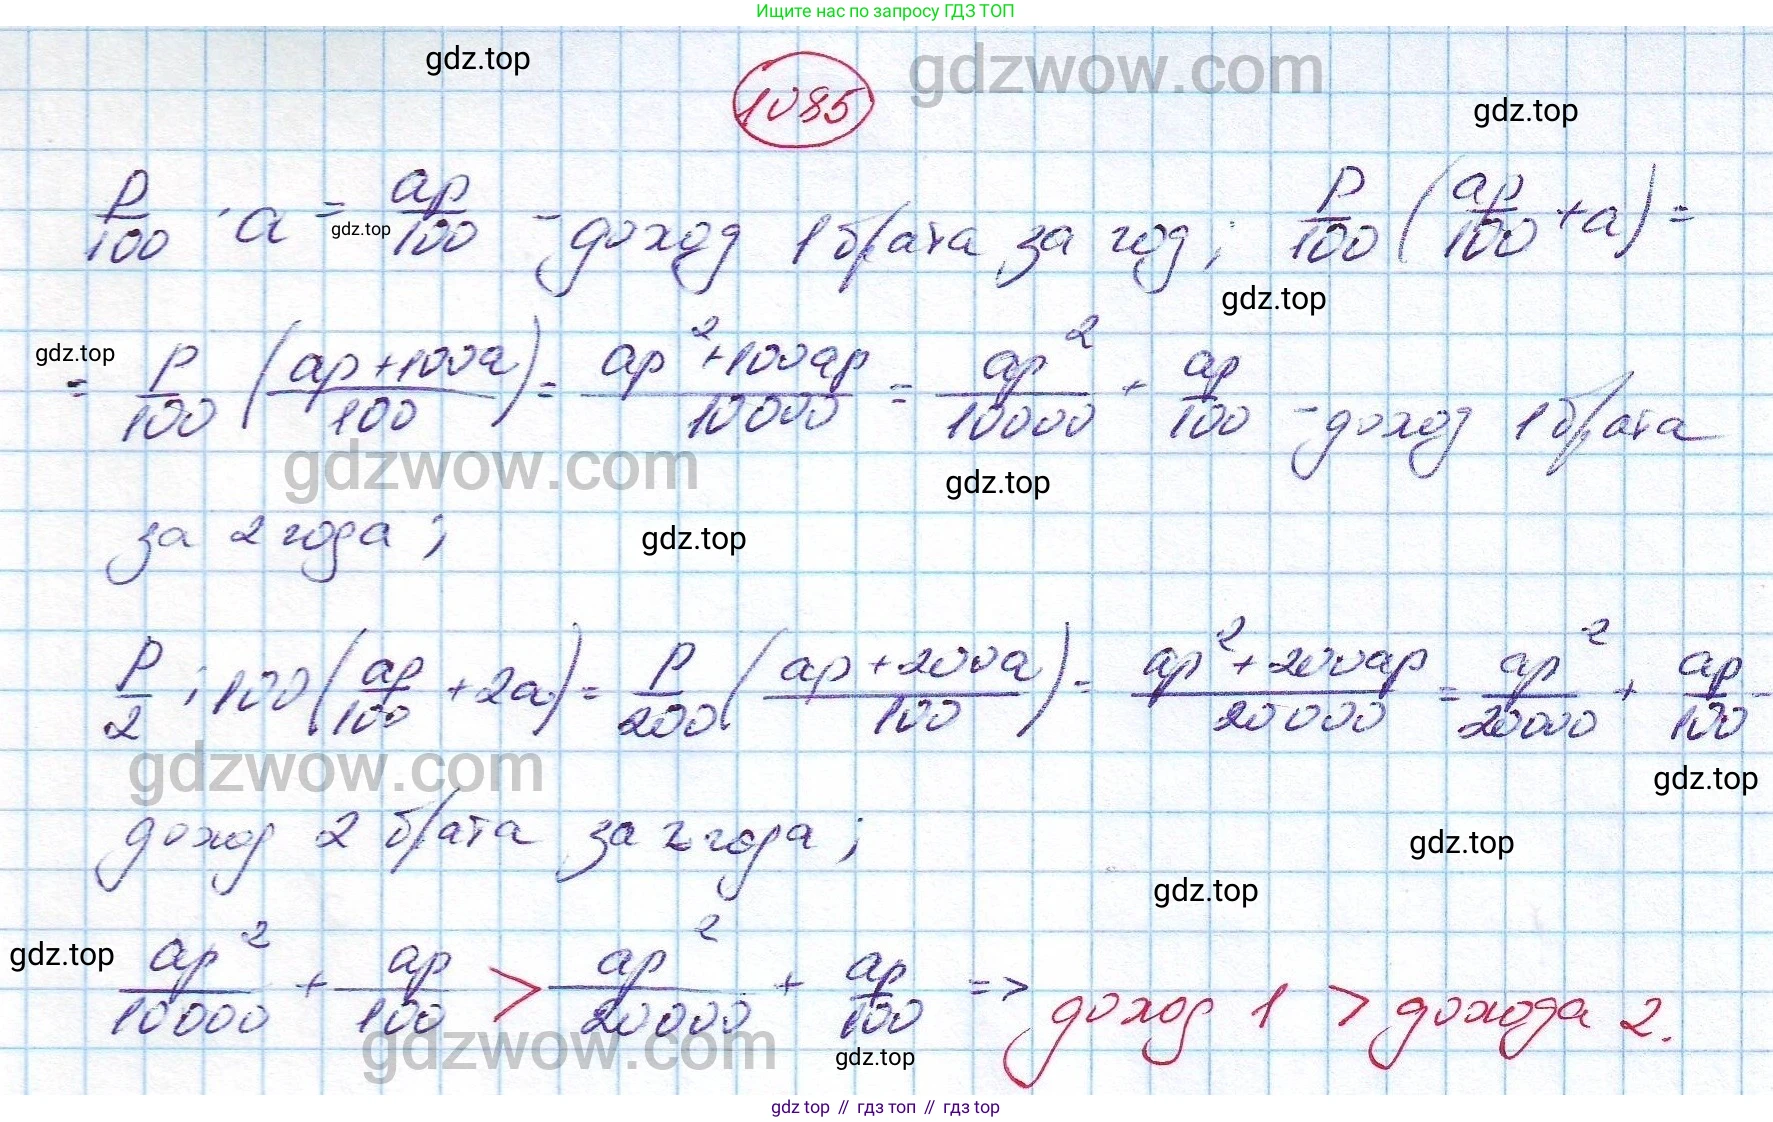 Ищите нас по запросу ГДЗ ТОП
gdz.top
gdzwow.com
1085
gdz.top
p/100 · a = ap/100 - доход 1 брата за год; p/100 (ap/100 + a) =
gdz.top
gdz.top
gdz.top
= p/100 ((ap+100a)/100) = (ap²+100ap)/10000 = ap²/10000 + ap/100 - доход 1 брата
gdzwow.com
gdz.top
за 2 года;
gdz.top
p/2 : 100 (ap/100 + 2a) = p/200 ((ap+200a)/100) = (ap²+200ap)/20000 = ap²/20000 + ap/100 -
gdzwow.com
gdz.top
доход 2 брата за 2 года;
gdz.top
gdz.top
gdz.top
ap²/10000 + ap/100 > ap²/20000 + ap/100 => доход 1 > дохода 2.
gdzwow.com
gdz.top
gdz top // гдз топ // gdz top